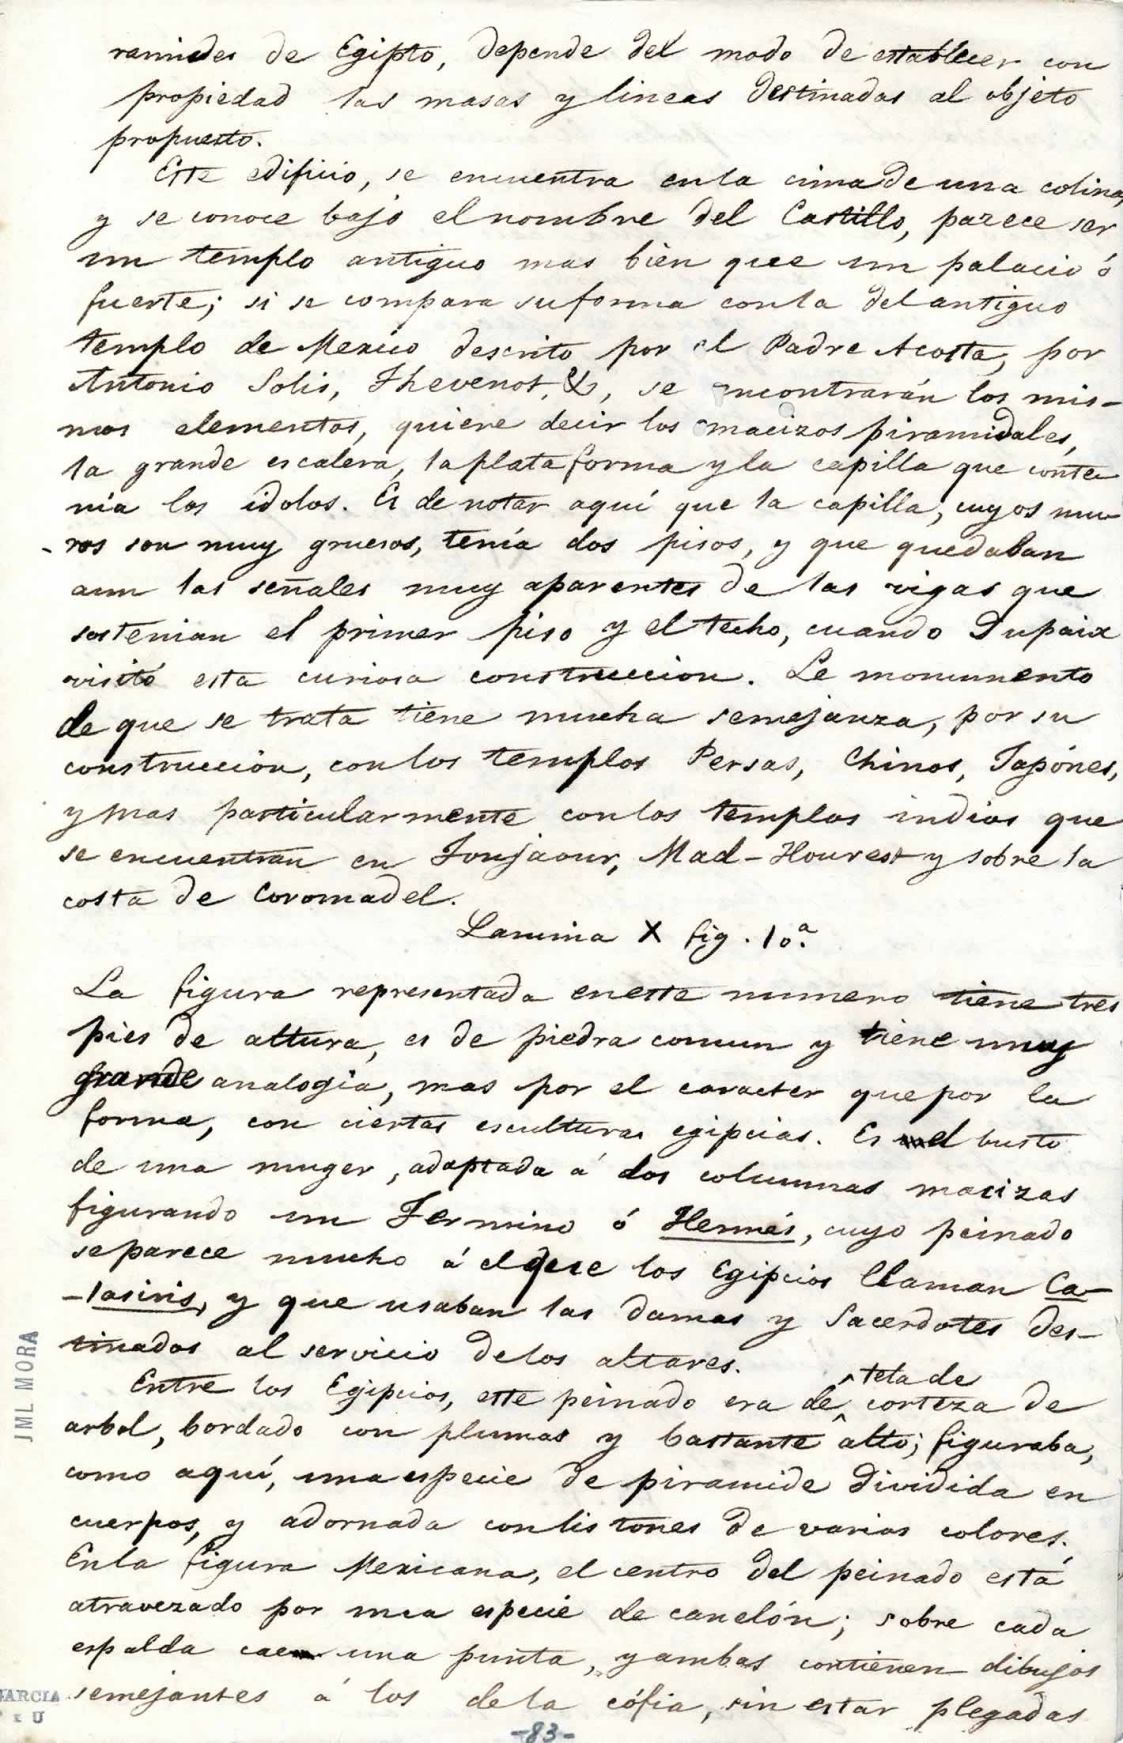 ramides de Egipto, depende del modo de establecer con
propiedad las masas y lineas destinadas al objeto
propuesto.
Este edificio, se encuentra en la cima de una colina,
y se conoce bajo el nombre del Castillo, parece ser
un templo antiguo mas bien que un palacio ó
fuerte; si se compara su forma con la del antiguo
templo de Mexico descrito por el Padre Acosta, por
Antonio Solis, Thevenot, &, se encontrarán los mis-
mos elementos, quiere decir los macizos piramidales,
la grande escalera, la plata forma y la capilla que conte-
nia los idolos. Es de notar aquí que la capilla, cuyos mu-
-ros son muy gruesos, tenía dos pisos, y que quedaban
aun las señales muy aparentes de las vigas que
sostenian el primer piso y el techo, cuando Dupaix
visitó esta curiosa construccion. Le monumento
de que se trata tiene mucha semejanza, por su
construcción, con los templos Persas, Chinos, Japónes,
y mas particularmente con los templos indios que
se encuentran en Tonjaour, Mad-Hourest y sobre la
costa de Coromadel.
Lamina X fig. 10.ª
La figura representada en este numero tiene tres
pies de altura, es de piedra comun y tiene muy
grande analogia, mas por el caracter que por la
forma, con ciertas esculturas egipcias. Es el busto
de una muger, adaptada á dos columnas macizas
figurando un Termino ó Hermés, cuyo peinado
se parece mucho á el que los Egipcios llaman Ca-
-lasiris, y que usaban las damas y Sacerdotes des-
tinados al servicio de los altares.
Entre los Egipcios, este peinado era de tela de corteza de
arbol, bordado con plumas y bastante alto; figuraba,
como aquí, una especie de piramide dividida en
cuerpos, y adornada con listones de varios colores.
En la figura Mexicana, el centro del peinado está
atravezado por una especie de canelón; sobre cada
espalda cae una punta, y ambas contienen dibujos
semejantes á los de la cófia, sin estar plegadas
-83-
JML MORA
GARCIA